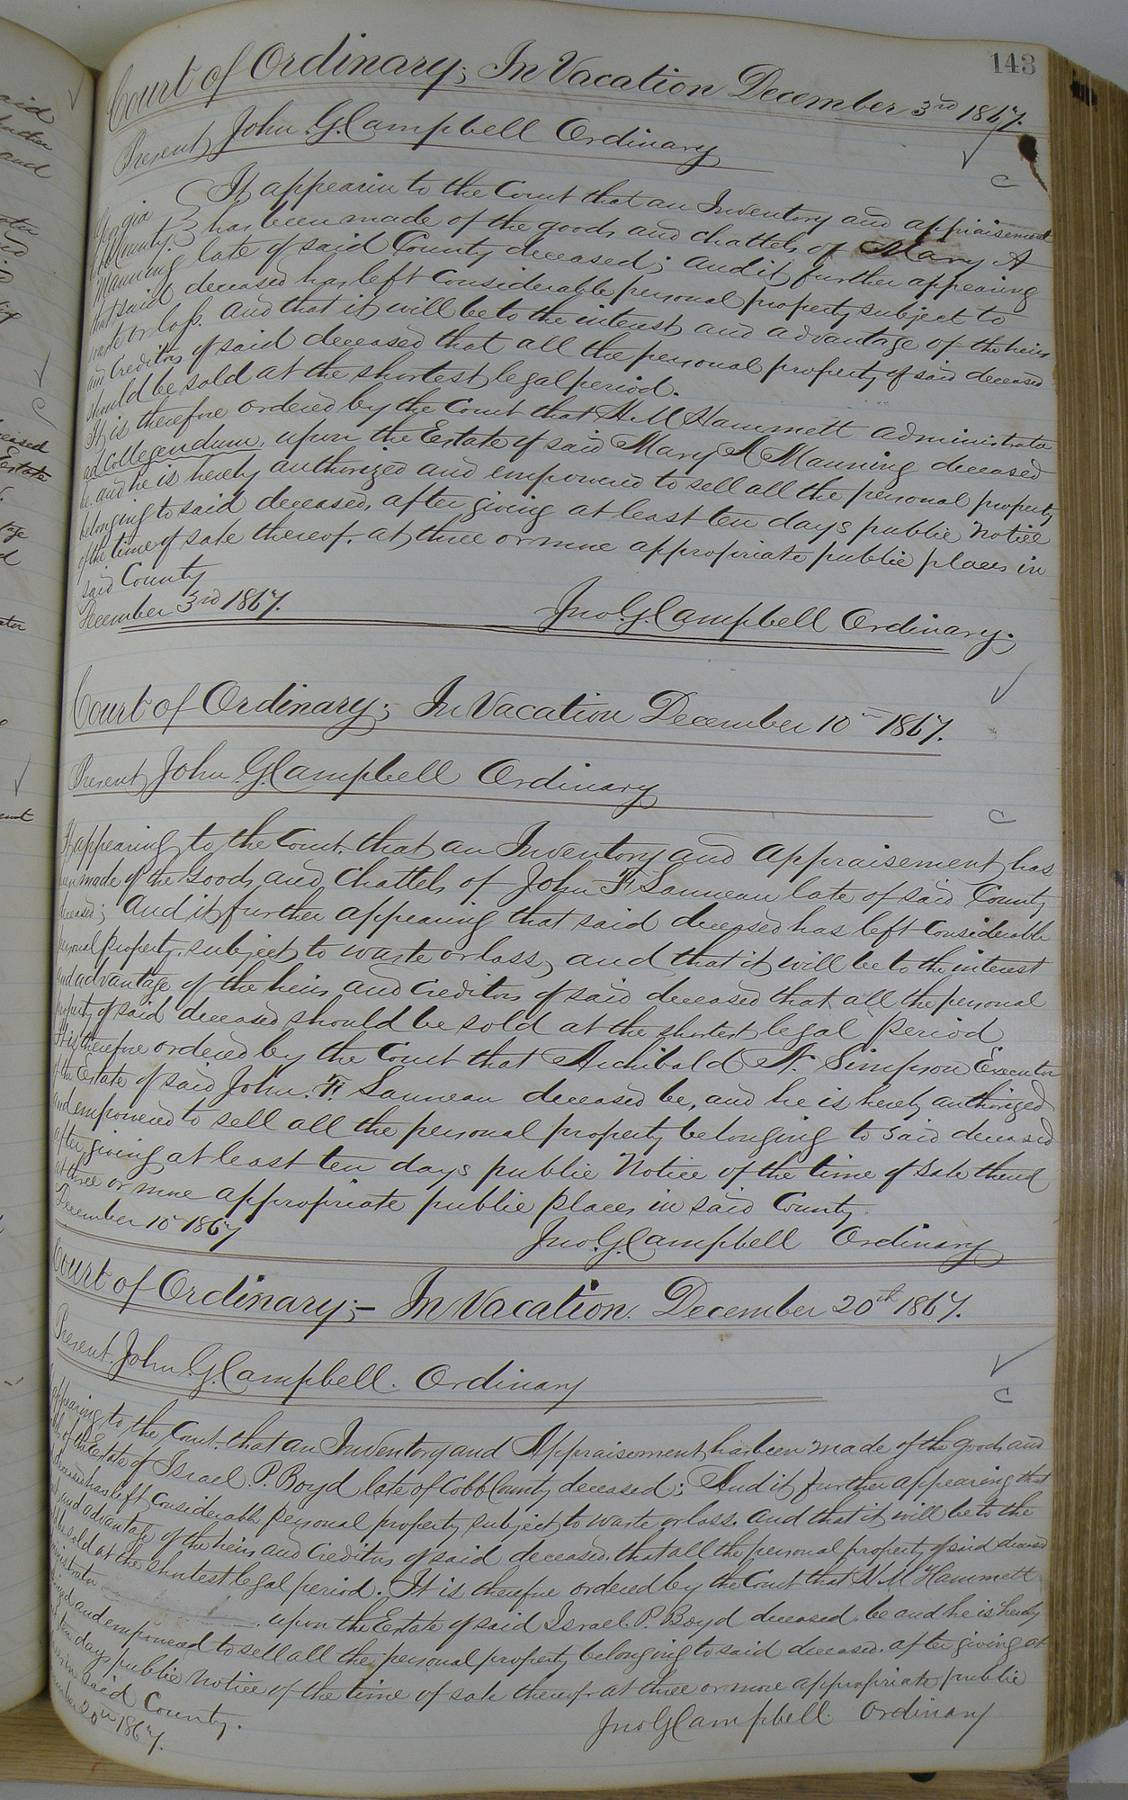 143
Court of Ordinary; In Vacation December 3rd 1867.
Present John G. Campbell Ordinary
It appearin to the Court that an Inventory and appraisement
County. has been made of the goods and chattels of Mary A
Manning late of said County deceased; and it further appearing
that said deceased has left Considerable personal property subject to
waste or loss. and that it will be to the interest and advantage of the heirs
and Creditors of said deceased that all the personal property of said deceased
should be sold at the shortest legal period.
It is therefore ordered by the Court that H. M Hammett administrator
ad Collegendum, upon the Estate of said Mary A Manning deceased
be and he is hereby authorized and empowered to sell all the personal property
belonging to said deceased, after giving at least ten days public Notice
of the time of sale thereof. at three or more appropriate public places in
said County
December 3rd 1867.
Jno. G. Campbell Ordinary.
Court of Ordinary; In Vacation December 10 1867.
Present John G. Campbell Ordinary
It appearing to the Court. that an Inventory and appraisement has
been made of the Goods and Chattels of John F. Launeau late of said County
deceased; and it further appearing that said deceased has left Considerable
personal property, subject to waste or loss, and that it will be to the interest
and advantage of the heirs and Creditors of said deceased that all the personal
property of said deceased should be sold at the shortest legal period
It is therefore ordered by the Court that Archibald N. Simpson Executor
of the Estate of said John. F. Launeau deceased be, and he is hereby authorized
and empowered to sell all the personal property belonging to said deceased
after giving at least ten days public Notice of the time of sale thereof
at three or more appropriate public places in said County
December 10 1867
Jno. G. Campbell Ordinary
Court of Ordinary;- In Vacation. December 20th 1867.
Present. John. G. Campbell. Ordinary
appearing to the Court. that an Inventory and Appraisement has been made of the goods and
of the Estate of Israel. P. Boyd late of Cobb County deceased; And it further appearing that
deceased has left considerable personal property subject to waste or loss. and that it will be to the
and advantage of the heirs and Creditors of said deceased. that all the personal property of said deceased
be sold at the shortest legal period. It is therefore ordered by the Court that H M Hammett
upon the Estate of said Israel. P. Boyd deceased be and he is hereby
and empowered to sell all the personal property belonging to said deceased. after giving at
ten days public notice of the time of sale thereof at three or more appropriate public
in said County.
20th 1867.
Jno G Campbell. Ordinary